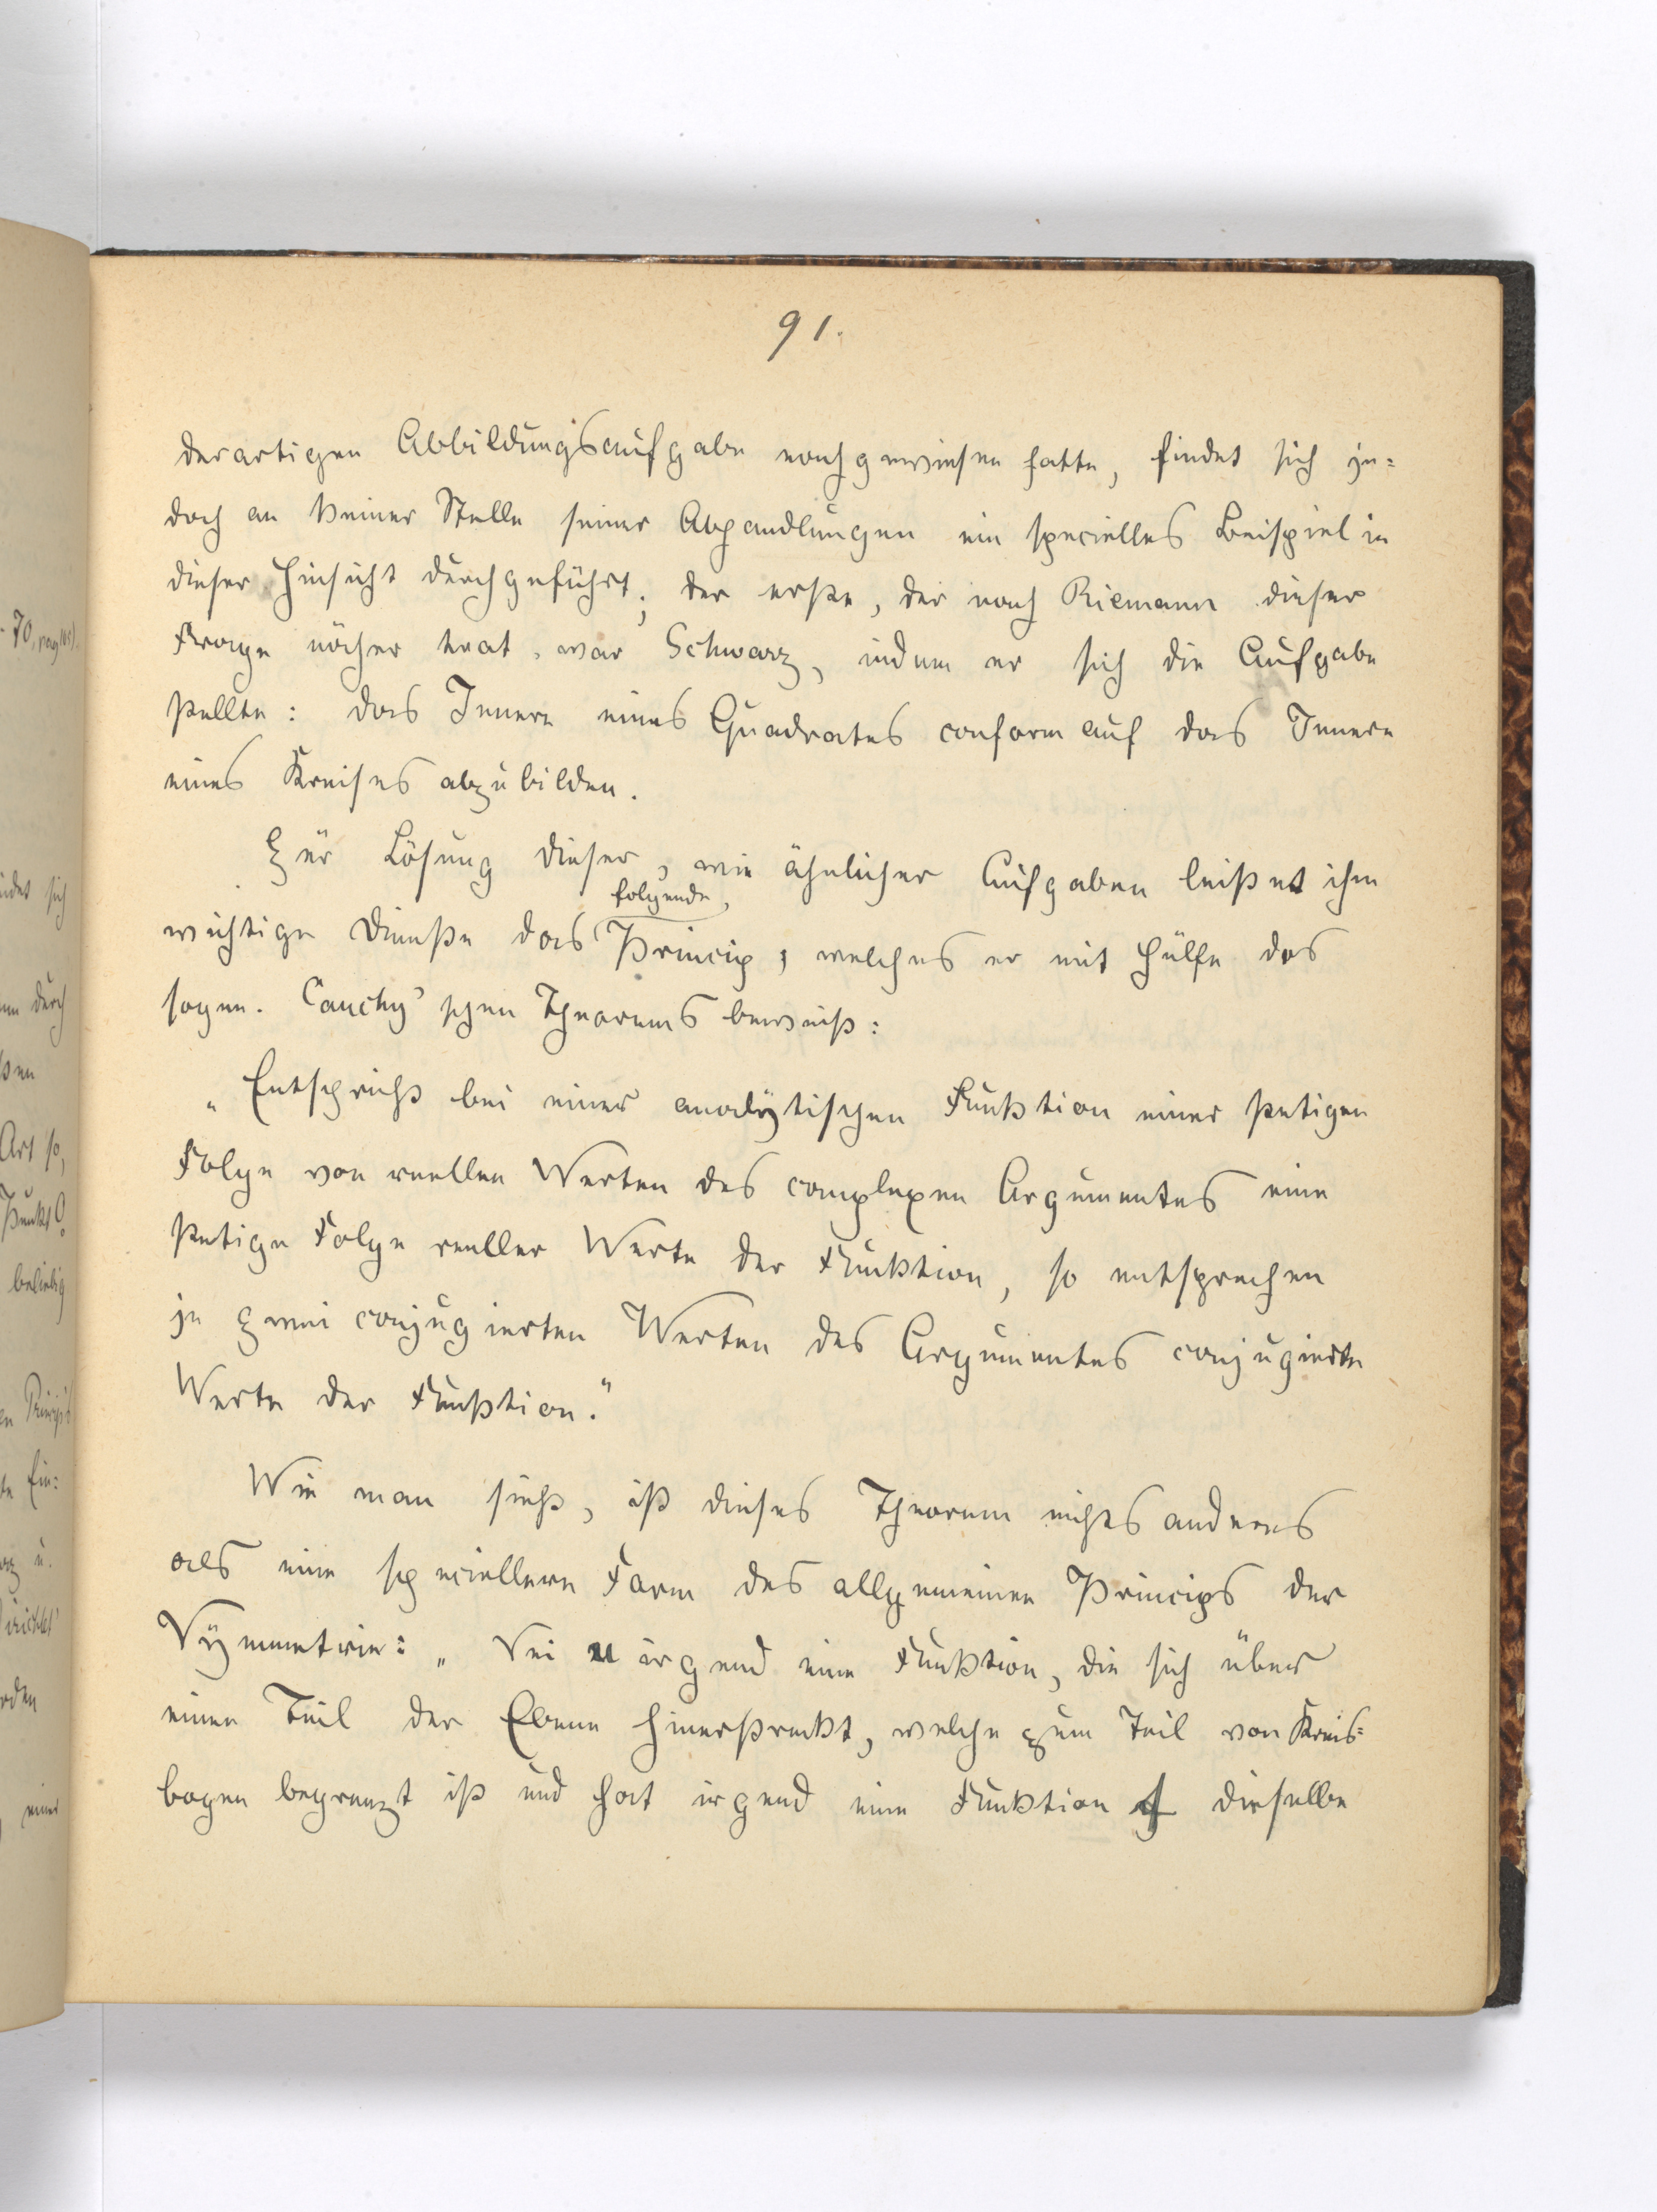 91.
derartigen Abbildungsaufgabe nachgewiesen hatte, findet sich je=
doch an keiner Stelle seiner Abhandlungen ein specielles Beispiel in
dieser Hinsicht durchgeführt; der erste, der nach Riemann dieser
Frage näher trat, war Schwarz, indem er sich die Aufgabe
stellte: das Innere eines Quadrates conform auf das Innere
eines Kreises abzubilden.
Zur Lösung dieser, wie ähnlicher Aufgaben leistet ihm
folgende,
wichtige Dienste das Princip, welches er mit Hülfe des
sogen. Cauchy'schen Theorems beweist:
„Entspricht bei einer analytischen Funktion einer stetigen
Folge von reellen Werten des complexen Argumentes eine
stetige Folge reeller Werte der Funktion, so entsprechen
je zwei conjugierten Werten des Argumentes conjugierte
Werte der Funktion."
Wie man sieht, ist dieses Theorem nichts anderes
als eine speciellere Form des allgemeinen Princips der
Symmetrie: „Sei u irgend eine Funktion, die sich über
einen Teil der Ebene hinerstreckt, welche zum Teil von Kreis=
bogen begrenzt ist und hat irgend eine Funktion f dieselbe
70, pag
det sich
durch
Art so,
Punkt O
beliebig
Princips
Ein:
u.
rden
einer